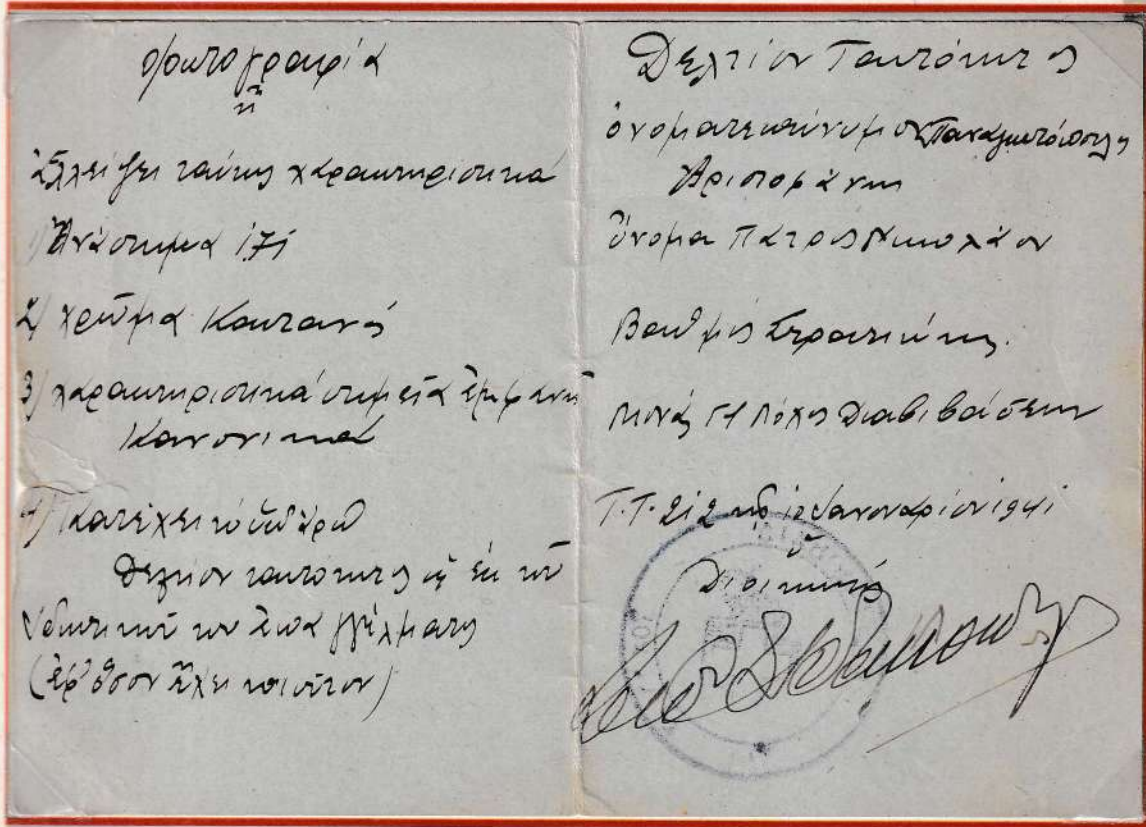 φωτογραφία
ἤ
ἐλλείψει ταύτης χαρακτηριστικά
1) Ἀνάστημα 1,71
2) χρῶμα Καστανός
3) χαρακτηριστικά σημεῖα ἐμφανῆ
Κανονικά
4) Κατέχει τό ὑπ' ἀριθ
Δελτίον ταυτότητος ὡς ἐκ τοῦ
ἰδιωτικοῦ του ἐπαγγέλματος
(ἐφ' ὅσον ἔχει τοιοῦτον)
Δελτίον Ταυτότητος
ὀνοματεπώνυμον Παναγιωτόπουλος
Ἀριστομένης
ὄνομα Πατρός Νικολάου
Βαθμός Στρατιώτης.
Μονάς Λόχος Διαβιβάσεων
Τ.Τ. 212 τῇ 12 Ἰανουαρίου 1941
Ὁ
Διοικητής